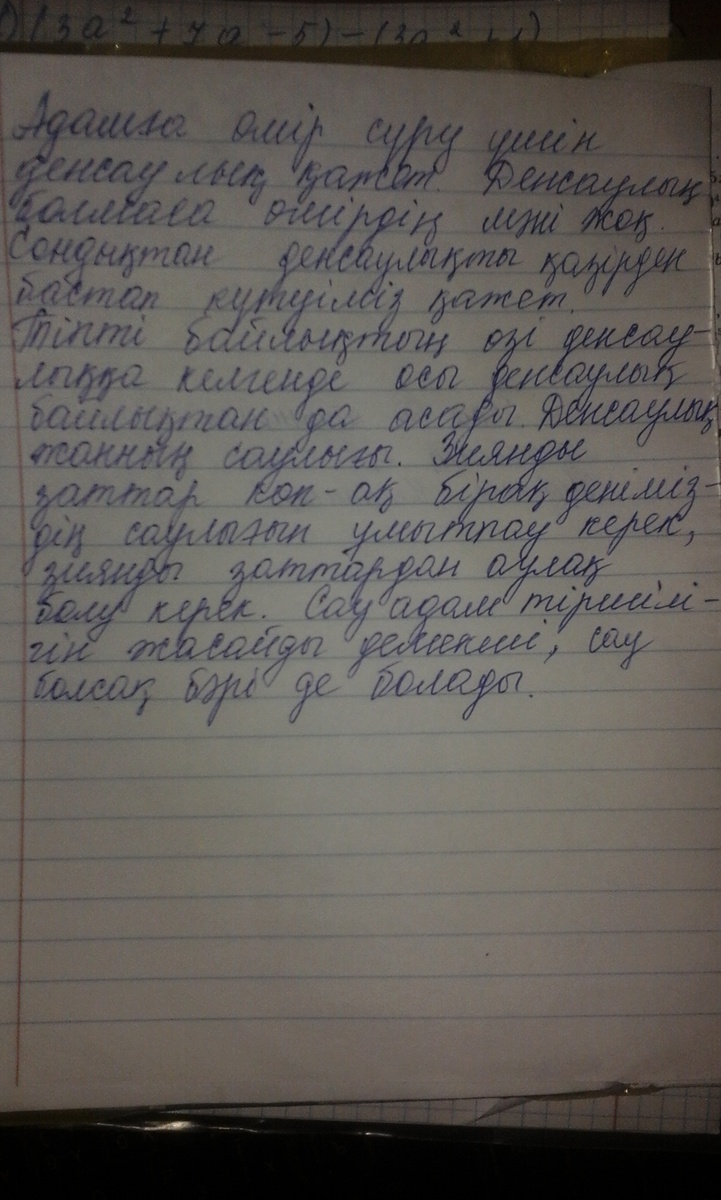 ) (3a² + 7a - 5) - (3a² + 1)
Адамға өмір сүру үшін
денсаулық қажет. Денсаулық
болмаса өмірдің мәні жоқ.
Сондықтан денсаулықты қазірден
бастап күтуіміз қажет.
Тіпті байлықтың өзі денсау-
лыққа келгенде осы денсаулық
байлықтан да асады. Денсаулық
жанның саулығы. Зиянды
заттар көп-ақ бірақ деніміз-
дің саулығын ұмытпау керек,
зиянды заттардан аулақ
болу керек. Сау адам тіршілі-
гін жасайды демекші, сау
болсақ бәрі де болады.